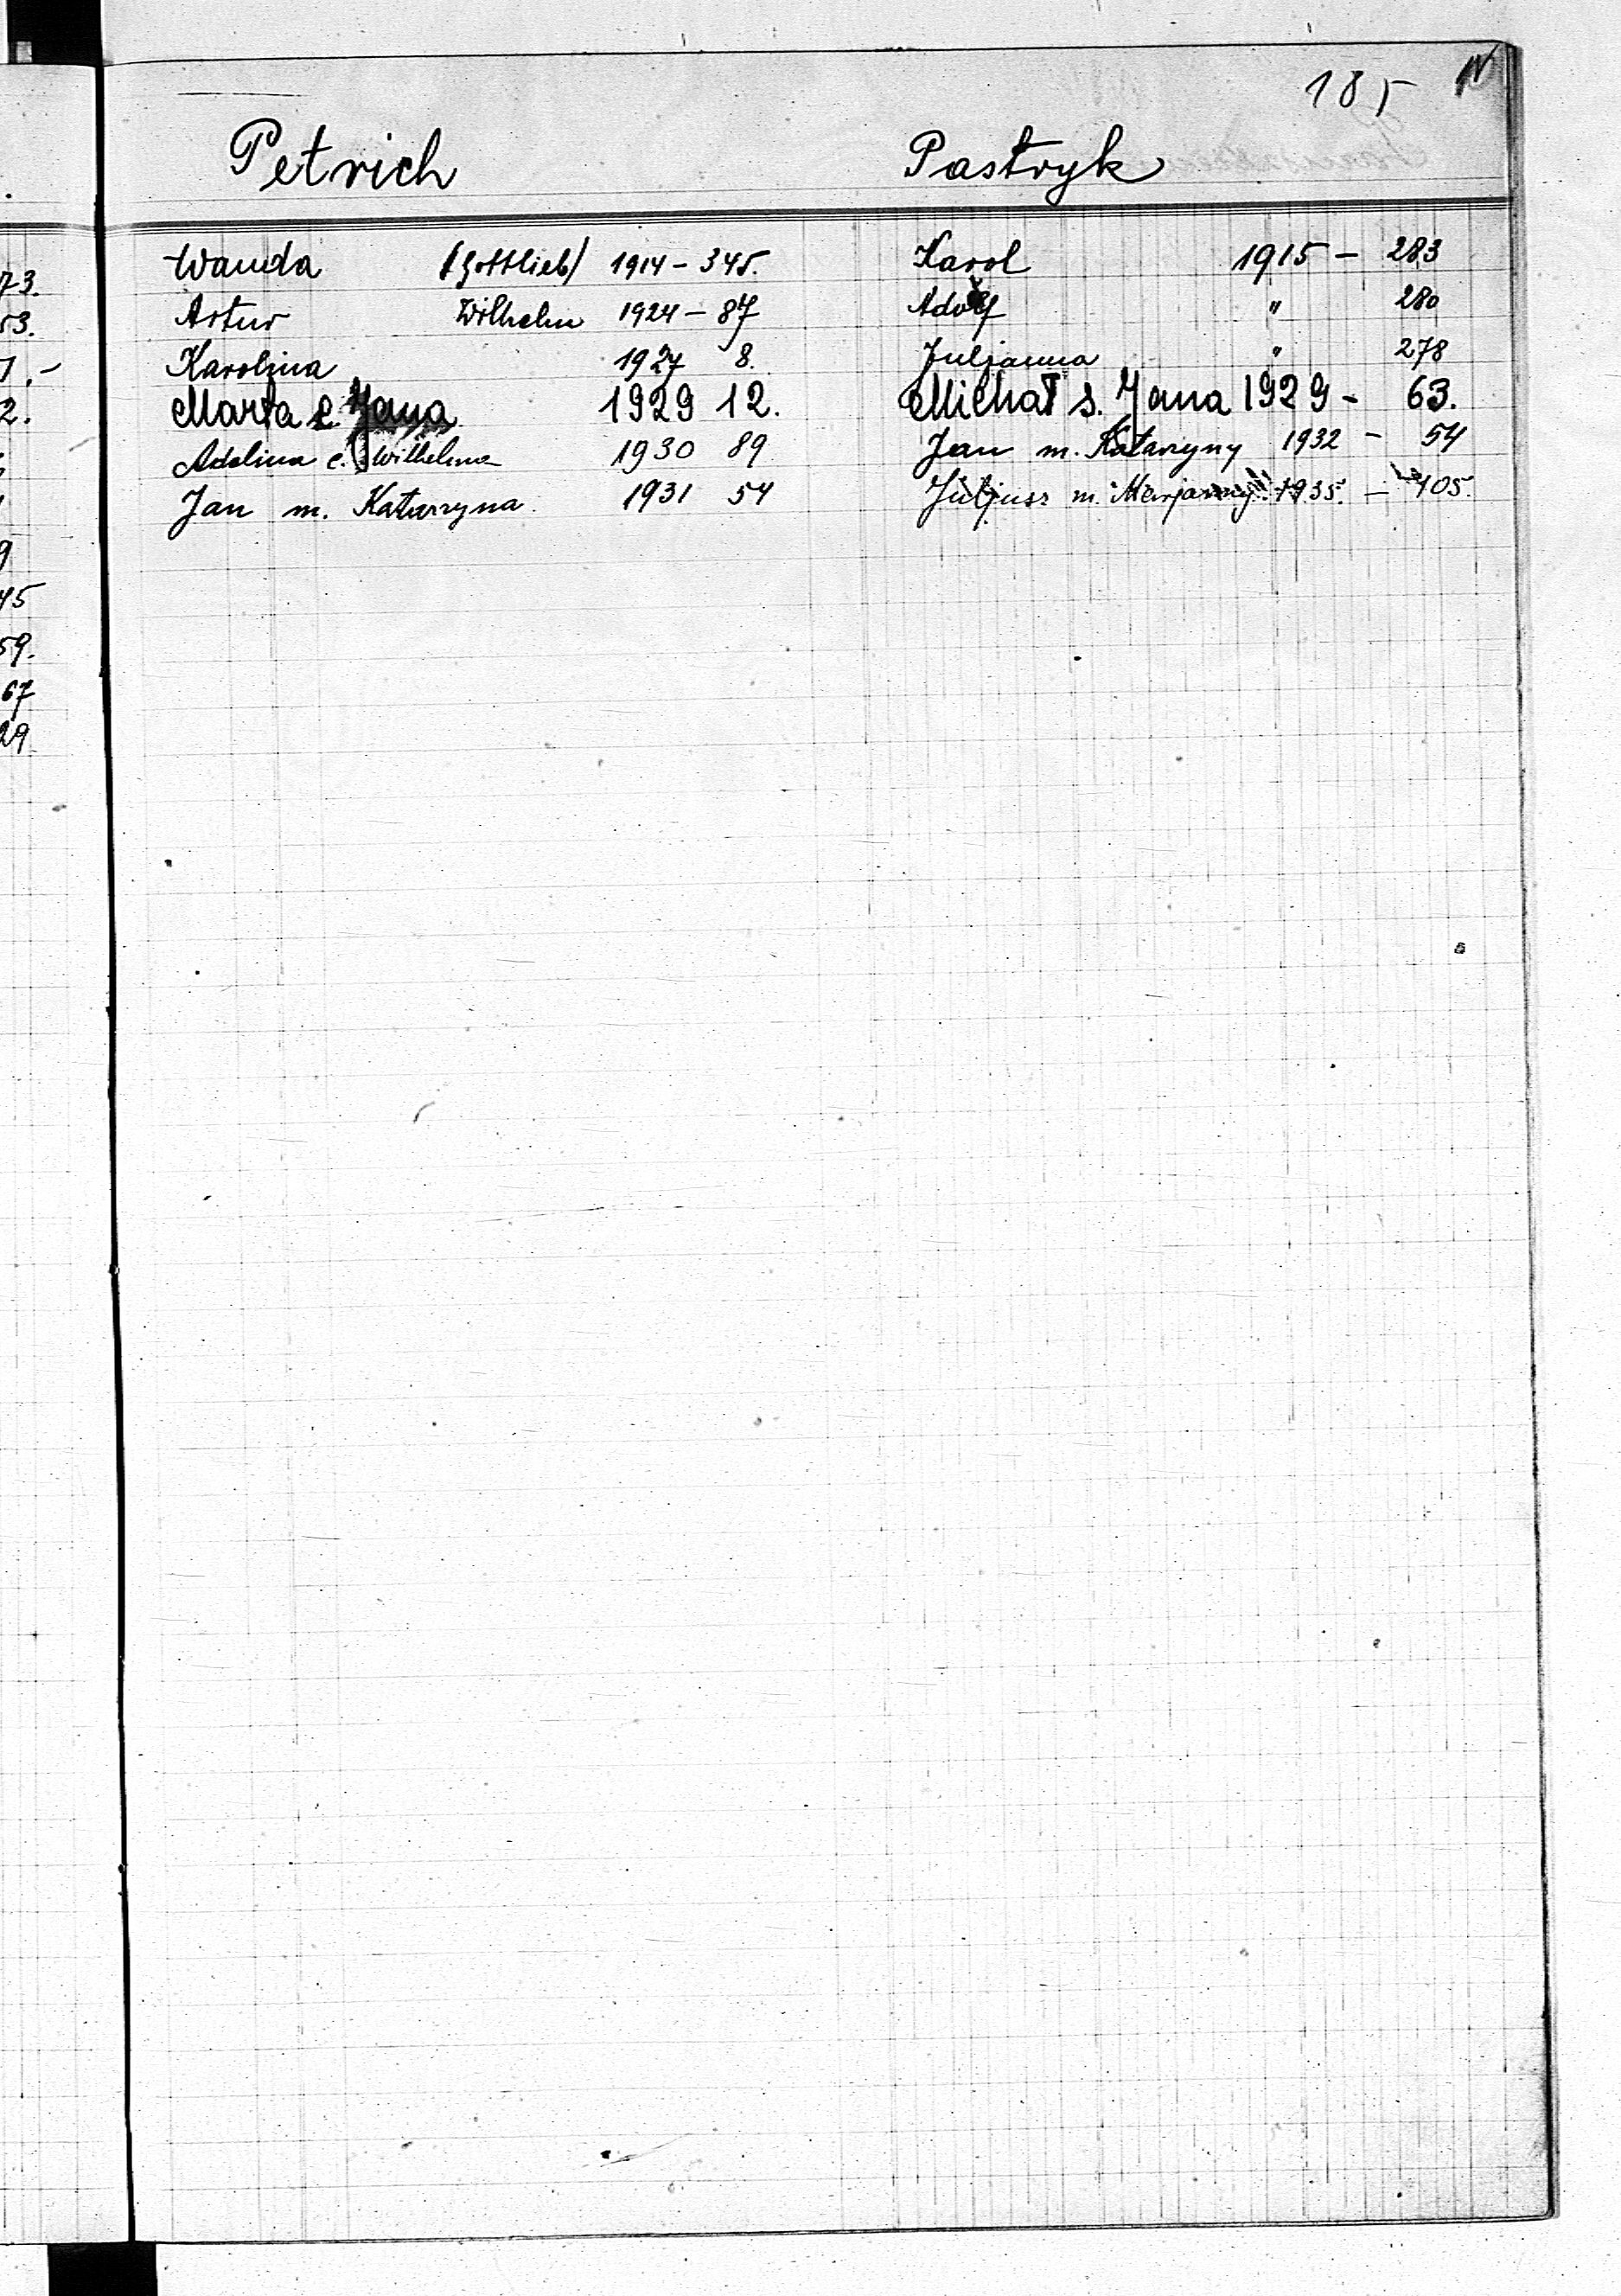 185 IV
Petrich
Wanda (Gottlieb) 1914 - 345.
Artur Wilhelm 1924 - 87
Karolina 1927 8.
Marta c. Jana 1929 12.
Adelina c. Wilhelma 1930 89
Jan m. Katarzyna. 1931 54
Pastryk
Karol 1915 - 283
Adolf " 280
Juljanna " 278
Michał s. Jana 1929 - 63.
Jan m. Katarzyny 1932 - 54
Juljusz m. Marjanny 1935. - 105.
73.
53.
2.
9
45
59.
67
29